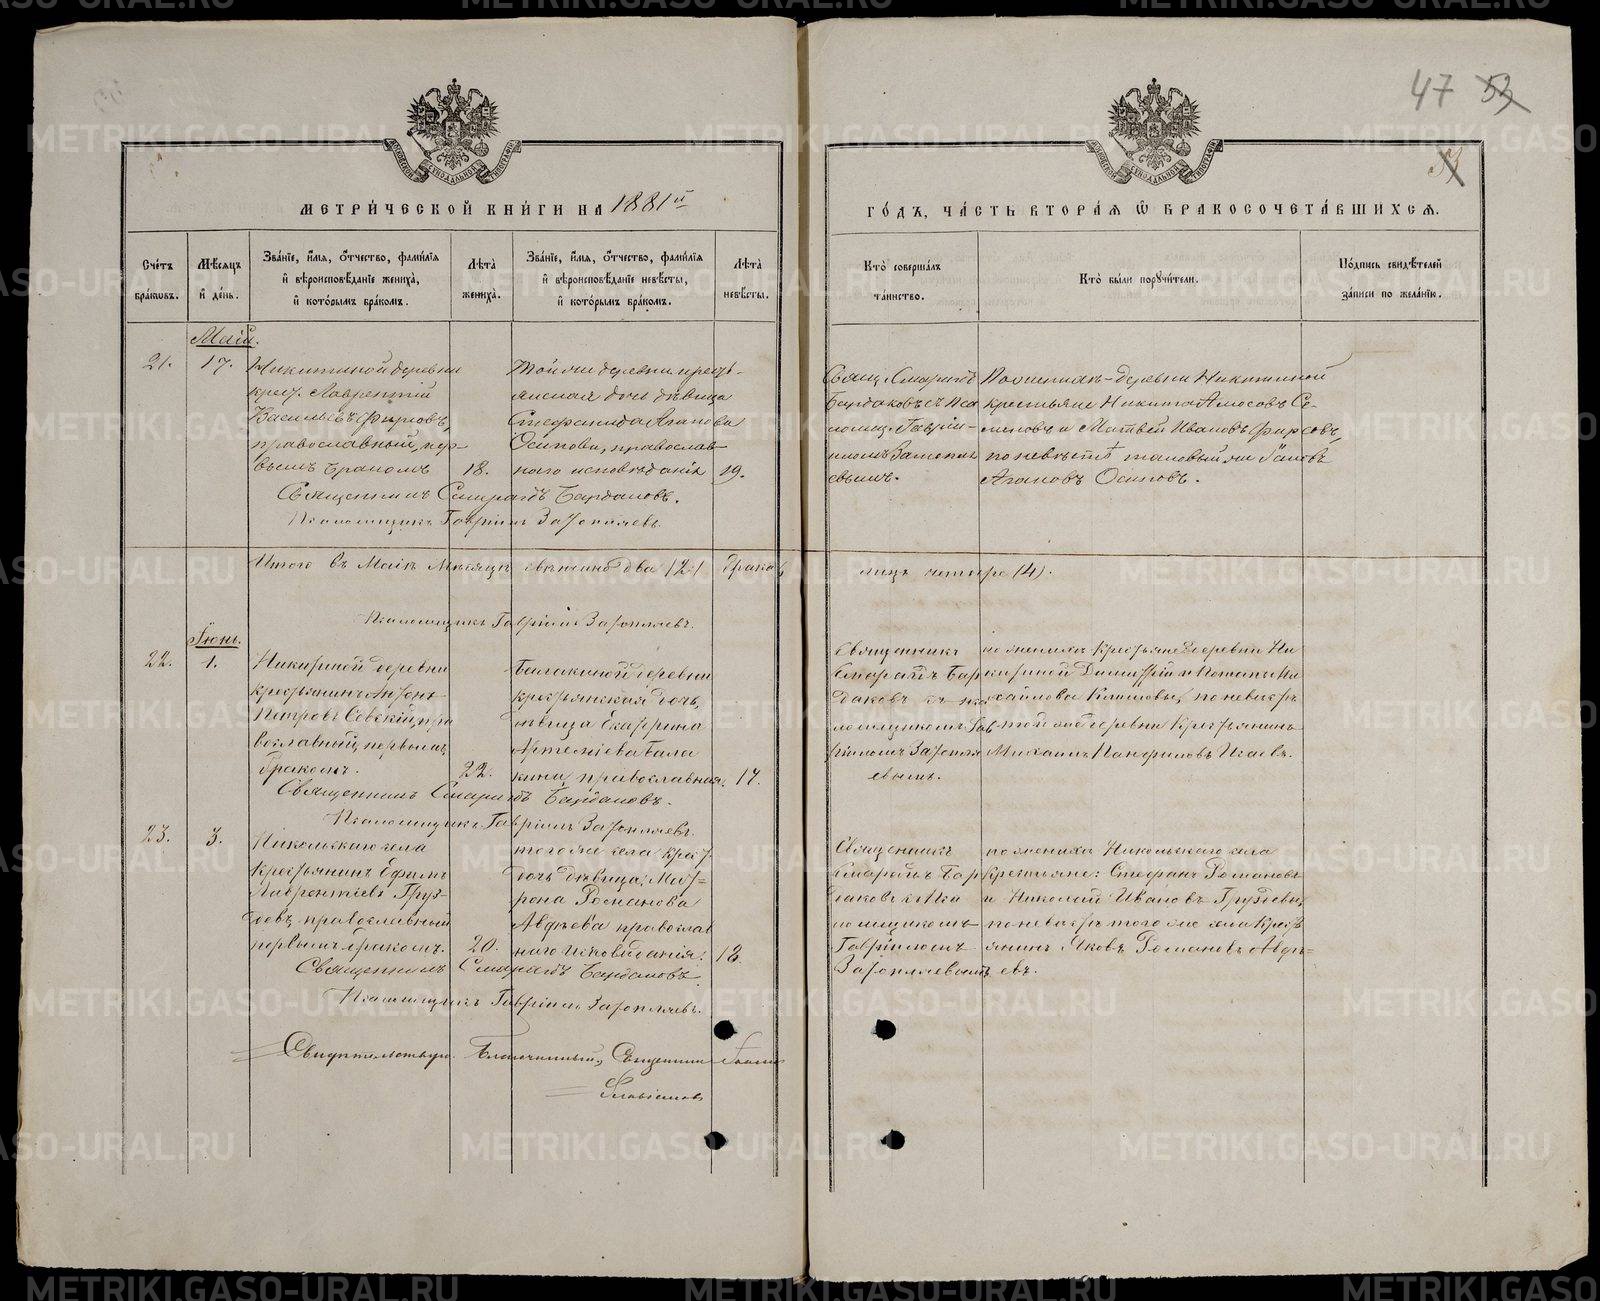 47 53
53
МЕТРИЧЕСКОЙ КНИГИ НА 1881й
ГОДЪ, ЧАСТЬ ВТОРАЯ Ѿ БРАКОСОЧЕТАВШИХСЯ.
Счетъ браковъ.
Мѣсяцъ и день.
Званіе, имя, отчество, фамилія и вѣроисповѣданіе жениха, и которымъ бракомъ.
Лѣта жениха.
Званіе, имя, отчество, фамилія и вѣроисповѣданіе невѣсты, и которымъ бракомъ.
Лѣта невѣсты.
Кто совершалъ таинство.
Кто были поручители.
Подпись свидѣтелей записи по желанію.
Маій.
21.
17.
Никитиной деревни
крест. Лаврентій
Васильевъ Фирсовъ,
православный, пер-
вымъ бракомъ
18.
Той же деревни крестъ-
янская дочь дѣвица
Стефанида Агапова
Осипова, православ-
наго исповѣданія
19.
Свящ. Смарагдъ
Бардаковъ съ Пса
ломщ. Гавріи-
ломъ Затопля
евымъ.
По женихѣ - деревни Никитиной
крестьяне Никита Амосовъ Се-
меновъ и Матвей Ивановъ Фирсовъ,
по невѣстѣ таковый же Іаковъ
Агаповъ Осиповъ.
Священникъ Смарагдъ Бардаковъ.
Псаломщикъ Гавріилъ Затопляевъ.
Итого въ Маѣ мѣсяцѣ вѣнчано два (2) брака,
лицъ четыре (4).
Псаломщикъ Гавріилъ Затопляевъ.
Іюнь.
22.
1.
Никириной деревни
крестьянинъ Антонъ
Петровъ Совскій, пра
вославный, первымъ
бракомъ.
22.
Балакиной деревни
крестьянская дочь,
дѣвица Екатерина
Артеміева Бала
кина, православная.
17.
Священникъ
Смарагдъ Бар
даковъ съ пса
ломщикомъ Гав
ріиломъ Затопля
евымъ.
по женихѣ крестьяне деревни Ни
кириной Димитрій и Потапъ Ми
хайловы Катковы, по невѣстѣ
той же деревни крестьянинъ
Михаилъ Панфиловъ Исаевъ.
Священникъ Смарагдъ Бардаковъ.
Псаломщикъ Гавріилъ Затопляевъ.
23.
3.
Никольскаго села
крестьянинъ Ефимъ
Лаврентіевъ Груз-
девъ, православный
первымъ бракомъ.
20.
того же села крест.
дочь дѣвица, Мат=
рона Романова
Авдѣева православ
наго исповѣданія.
18
Священникъ
Смарагдъ Бар
даковъ съ Пса
ломщикомъ
Гавріиломъ
Затопляевымъ
по женихѣ Никольскаго села
крестьяне: Стефанъ Романовъ
и Николай Ивановъ Груздевы,
по невѣстѣ того же села крест
янинъ Яковъ Романовъ Авдѣ=
евъ.
Священникъ Смарагдъ Бардаковъ.
Псаломщикъ Гавріилъ Затопляевъ.
Свидѣтельствую. Благочинный, Священникъ Іоаннъ
METRIKI.GASO-URAL.RU